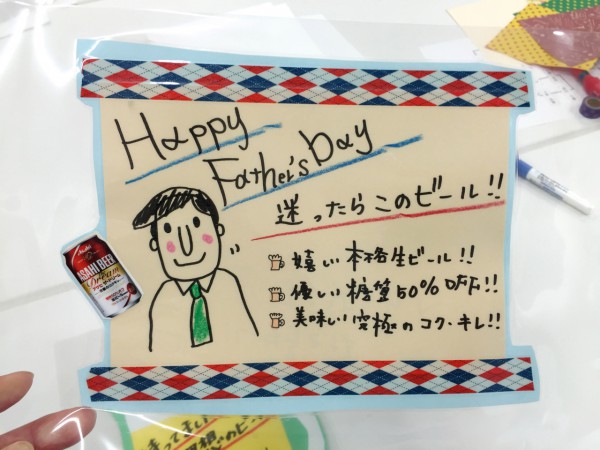 Happy
Father's Day
迷ったらこのビール!!
嬉しい本格生ビール!!
優しい糖質50%OFF!!
美味しい究極のコク・キレ!!
Asahi
ASAHI BEER